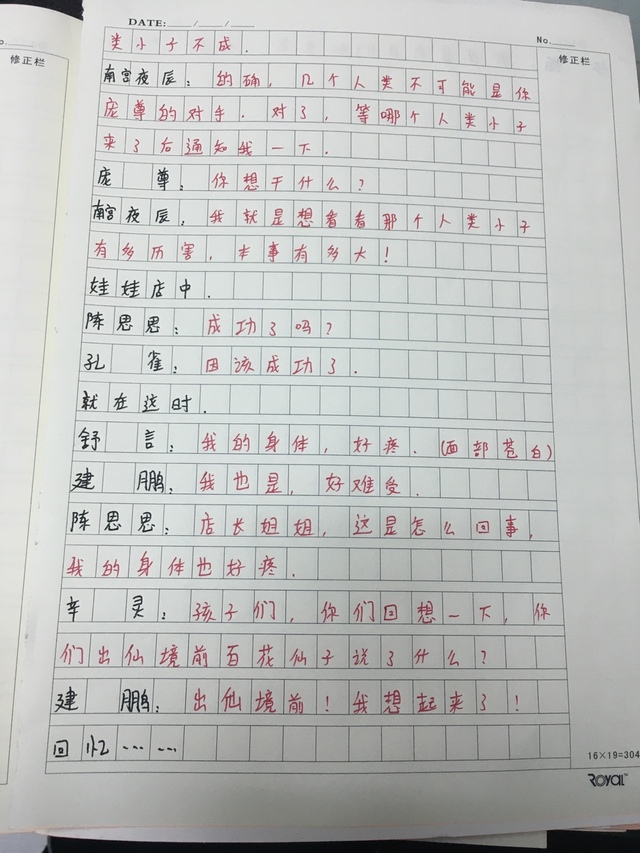 DATE: / /
No.
修正栏
修正栏
类小子不成.
南宫夜辰:的确,几个人类不可能是你
庞尊的对手.对了,等哪个人类小子
来了后通知我一下.
庞尊:你想干什么?
南宫夜辰:我就是想看看那个人类小子
有多历害,本事有多大!
娃娃店中.
陈思思:成功了吗?
孔雀:因该成功了.
就在这时.
舒言:我的身体,好疼.(面部苍白)
建鹏:我也是,好难受.
陈思思:店长姐姐,这是怎么回事,
我的身体也好疼.
辛灵:孩子们,你们回想一下,你
们出仙境前百花仙子说了什么?
建鹏:出仙境前!我想起来了!
回忆……
16×19=304
ROYAL™